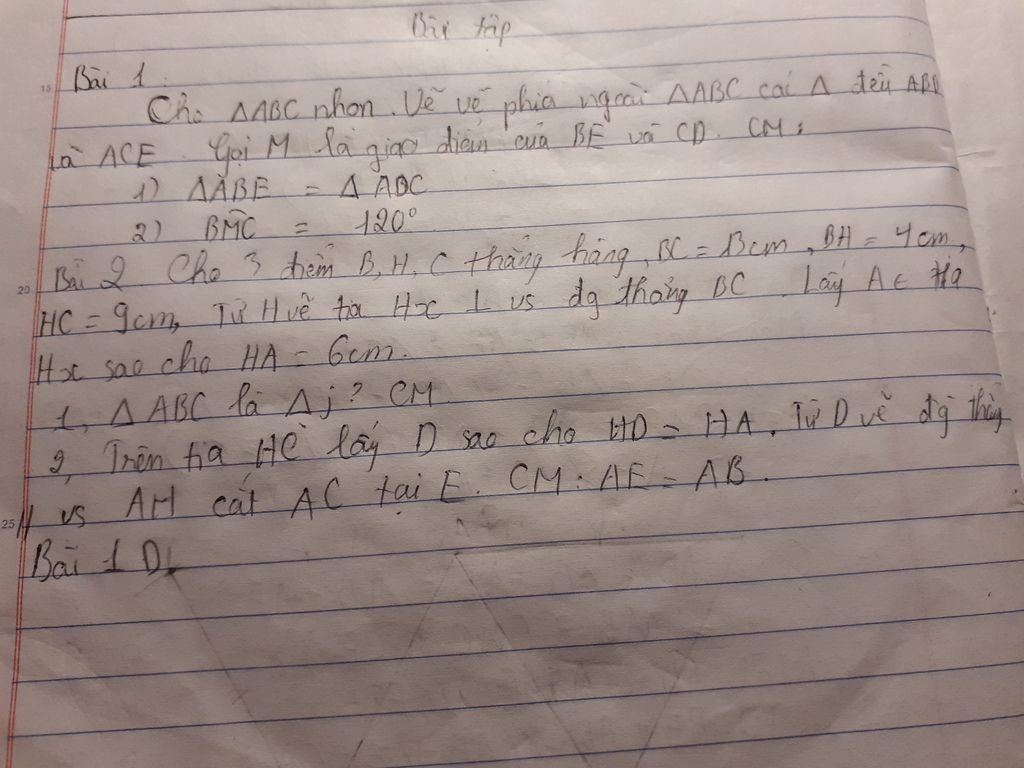 Bài tập
15 Bài 1.
Cho ΔABC nhọn. Vẽ về phía ngoài ΔABC các Δ đều ABD
và ACE. Gọi M là giao điểm của BE và CD. CM:
1) ΔABE = ΔADC
2) BMC = 120°
20 Bài 2 Cho 3 điểm B, H, C thẳng hàng, BC = 13cm, BH = 4cm,
HC = 9cm, Từ H vẽ tia Hx ⊥ vs đg thẳng BC. Lấy A ∈ tia
Hx sao cho HA = 6cm.
1, Δ ABC là Δ j? CM
2, Trên tia HC lấy D sao cho HD = HA. Từ D vẽ đg thẳng
25 // vs AH cắt AC tại E. CM: AE = AB.
Bài 1